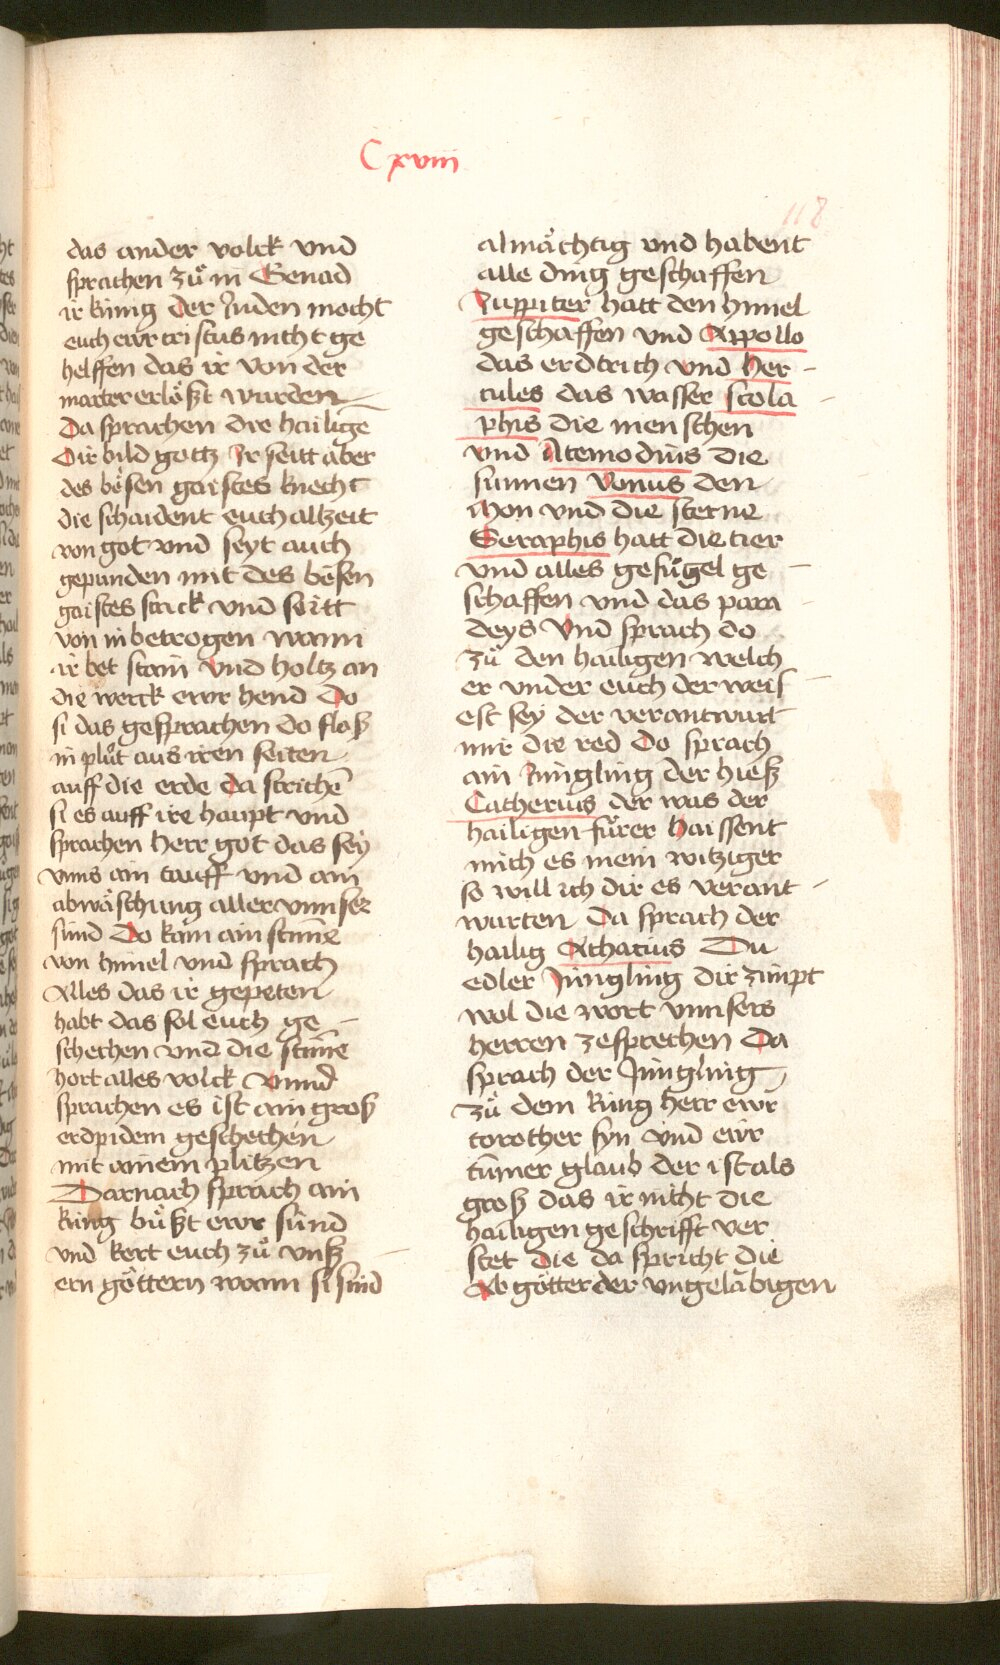 Cxviii
118
das ander volck vnd
sprachen zuͦ in Genad
ir küng der Juden mocht
euch ewr cristus nitht ge
helffen das ir von der
marter erlöszt wurden
Da sprachen die hailige
Dir bild gottz Ir seitt aber
des bösen gaistes knecht
die schaident euch allzeit
von got vnd seyt auch
gepunden mit des bösen
gaistes strick vnd seitt
von in betrogen wann
ir bet stain vnd holtz an
die werck ewr hend Do
si das gesprachen do flosz
in pluͦt aus iren seiten
auff die erde Da strichē
si es auff ire haupt vnd
sprachen herr got das sey
vnns ain tauff vnd ain
abwäschung aller vnnser
sünd Do kam ain stīme
von himel vnd sprach
Alles das ir gepeten
habt das sol euch ge
schechen vnd die stīme
hort alles volck Vnnd
sprachen es ist ain grosz
erdpidem geschechen
mit ainem plitzen
Darnach sprach ain
küng buͦszt ewr sünd
vnd kert euch zuͦ vnsz
ern göttern wann si sind
almächtig vnd habent
alle ding geschaffen
Juppiter hatt den himel
geschaffen vnd Appollo
das erdtrich vnd Her
cules das wasser scola
phis die menschen
vnd Atemodius die
sunnen Vonus den
Mon vnd die sterne
Seraphis hatt die tier
vnd alles gefügel ge
schaffen vnd das para
deys Vnd sprach do
zuͦ den hailigen welch
er vnder euch der weis
est sey der verantwurt
mir die red Do sprach
ain Jüngling der hiesz
Catherius der was der
hailigen fürer Haissent
mich es mein witziger
so will ich dir es verant
wurten Da sprach der
hailig Athatius Du
edler Jüngling dir zimpt
wol die wort vnnsers
herren zesprechen Da
sprach der Jüngling
zuͦ dem küng herr ewr
torother syn vnd ewr
tūmer glaub der ist als
grosz das ir nitht die
hailigen geschrifft ver
stet die da spricht die
Abgötter der vngeläbigen